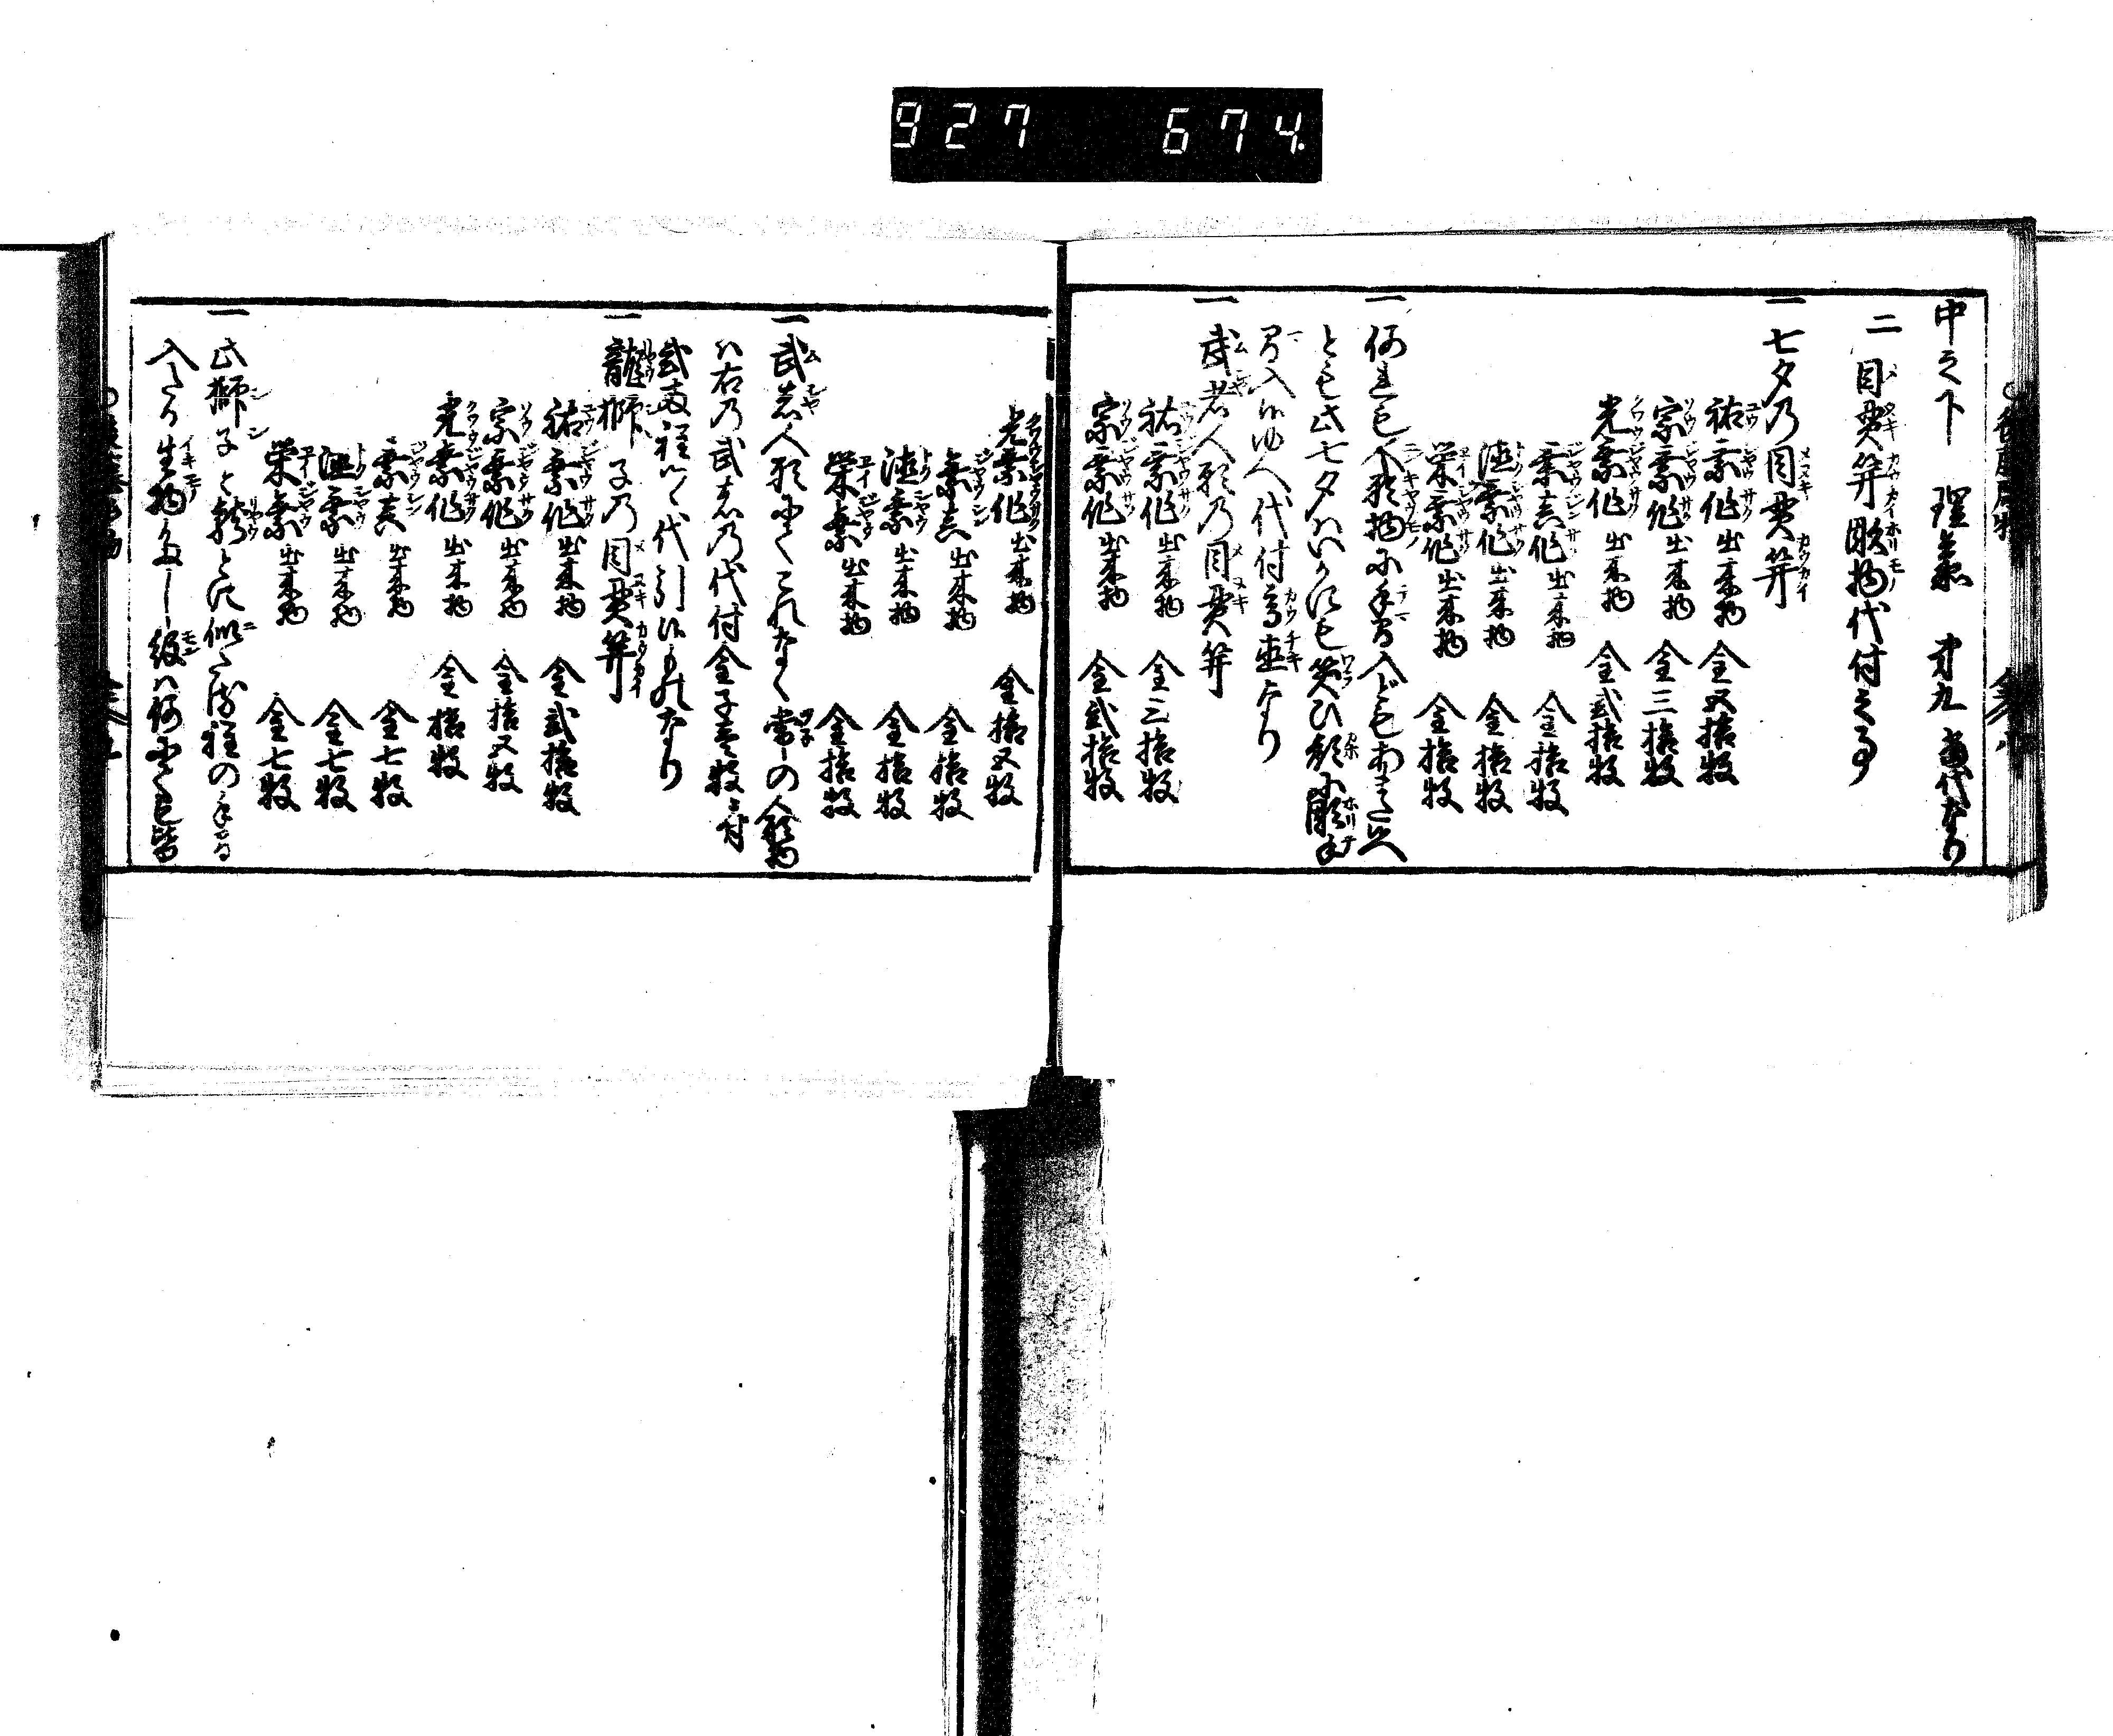 927 674.
中之下 理乗 才九 通代なり
二 目貫笄彫物代付之事
一 七夕乃目貫笄
祐乗作出来物 金五拾枚
宗乗作出来物 金三拾枚
光乗作 出来物 金弐拾枚
乗真作出来物 金拾枚
徳乗作出来物 金拾枚
栄乗作出来物 金拾枚
一 何連も人形物ハ手間入ども
とも此七夕ハいかにも笑ひ顔に彫手
間入候ゆへ代付高直なり
一 武者人形乃目貫笄
祐乗作出来物 金三拾枚
宗乗作出来物 金弐拾枚
光乗作出来物 金拾五枚
乗真出来物 金拾枚
徳乗出来物 金拾枚
栄乗出来物 金拾枚
一 武者人形にてこれなく常の人形物
ハ右乃武者乃代付金子壱枚ニ付
弐両程つゝ代引候ものなり
一 龍獅子乃目貫笄
祐乗作出来物 金弐拾枚
宗乗作出来物 金拾五枚
光乗作出来物 金拾枚
乗真出来物 金七枚
徳乗出来物 金七枚
栄乗出来物 金七枚
一 此獅子と龍とに似た
生物 紋ハ何にても皆